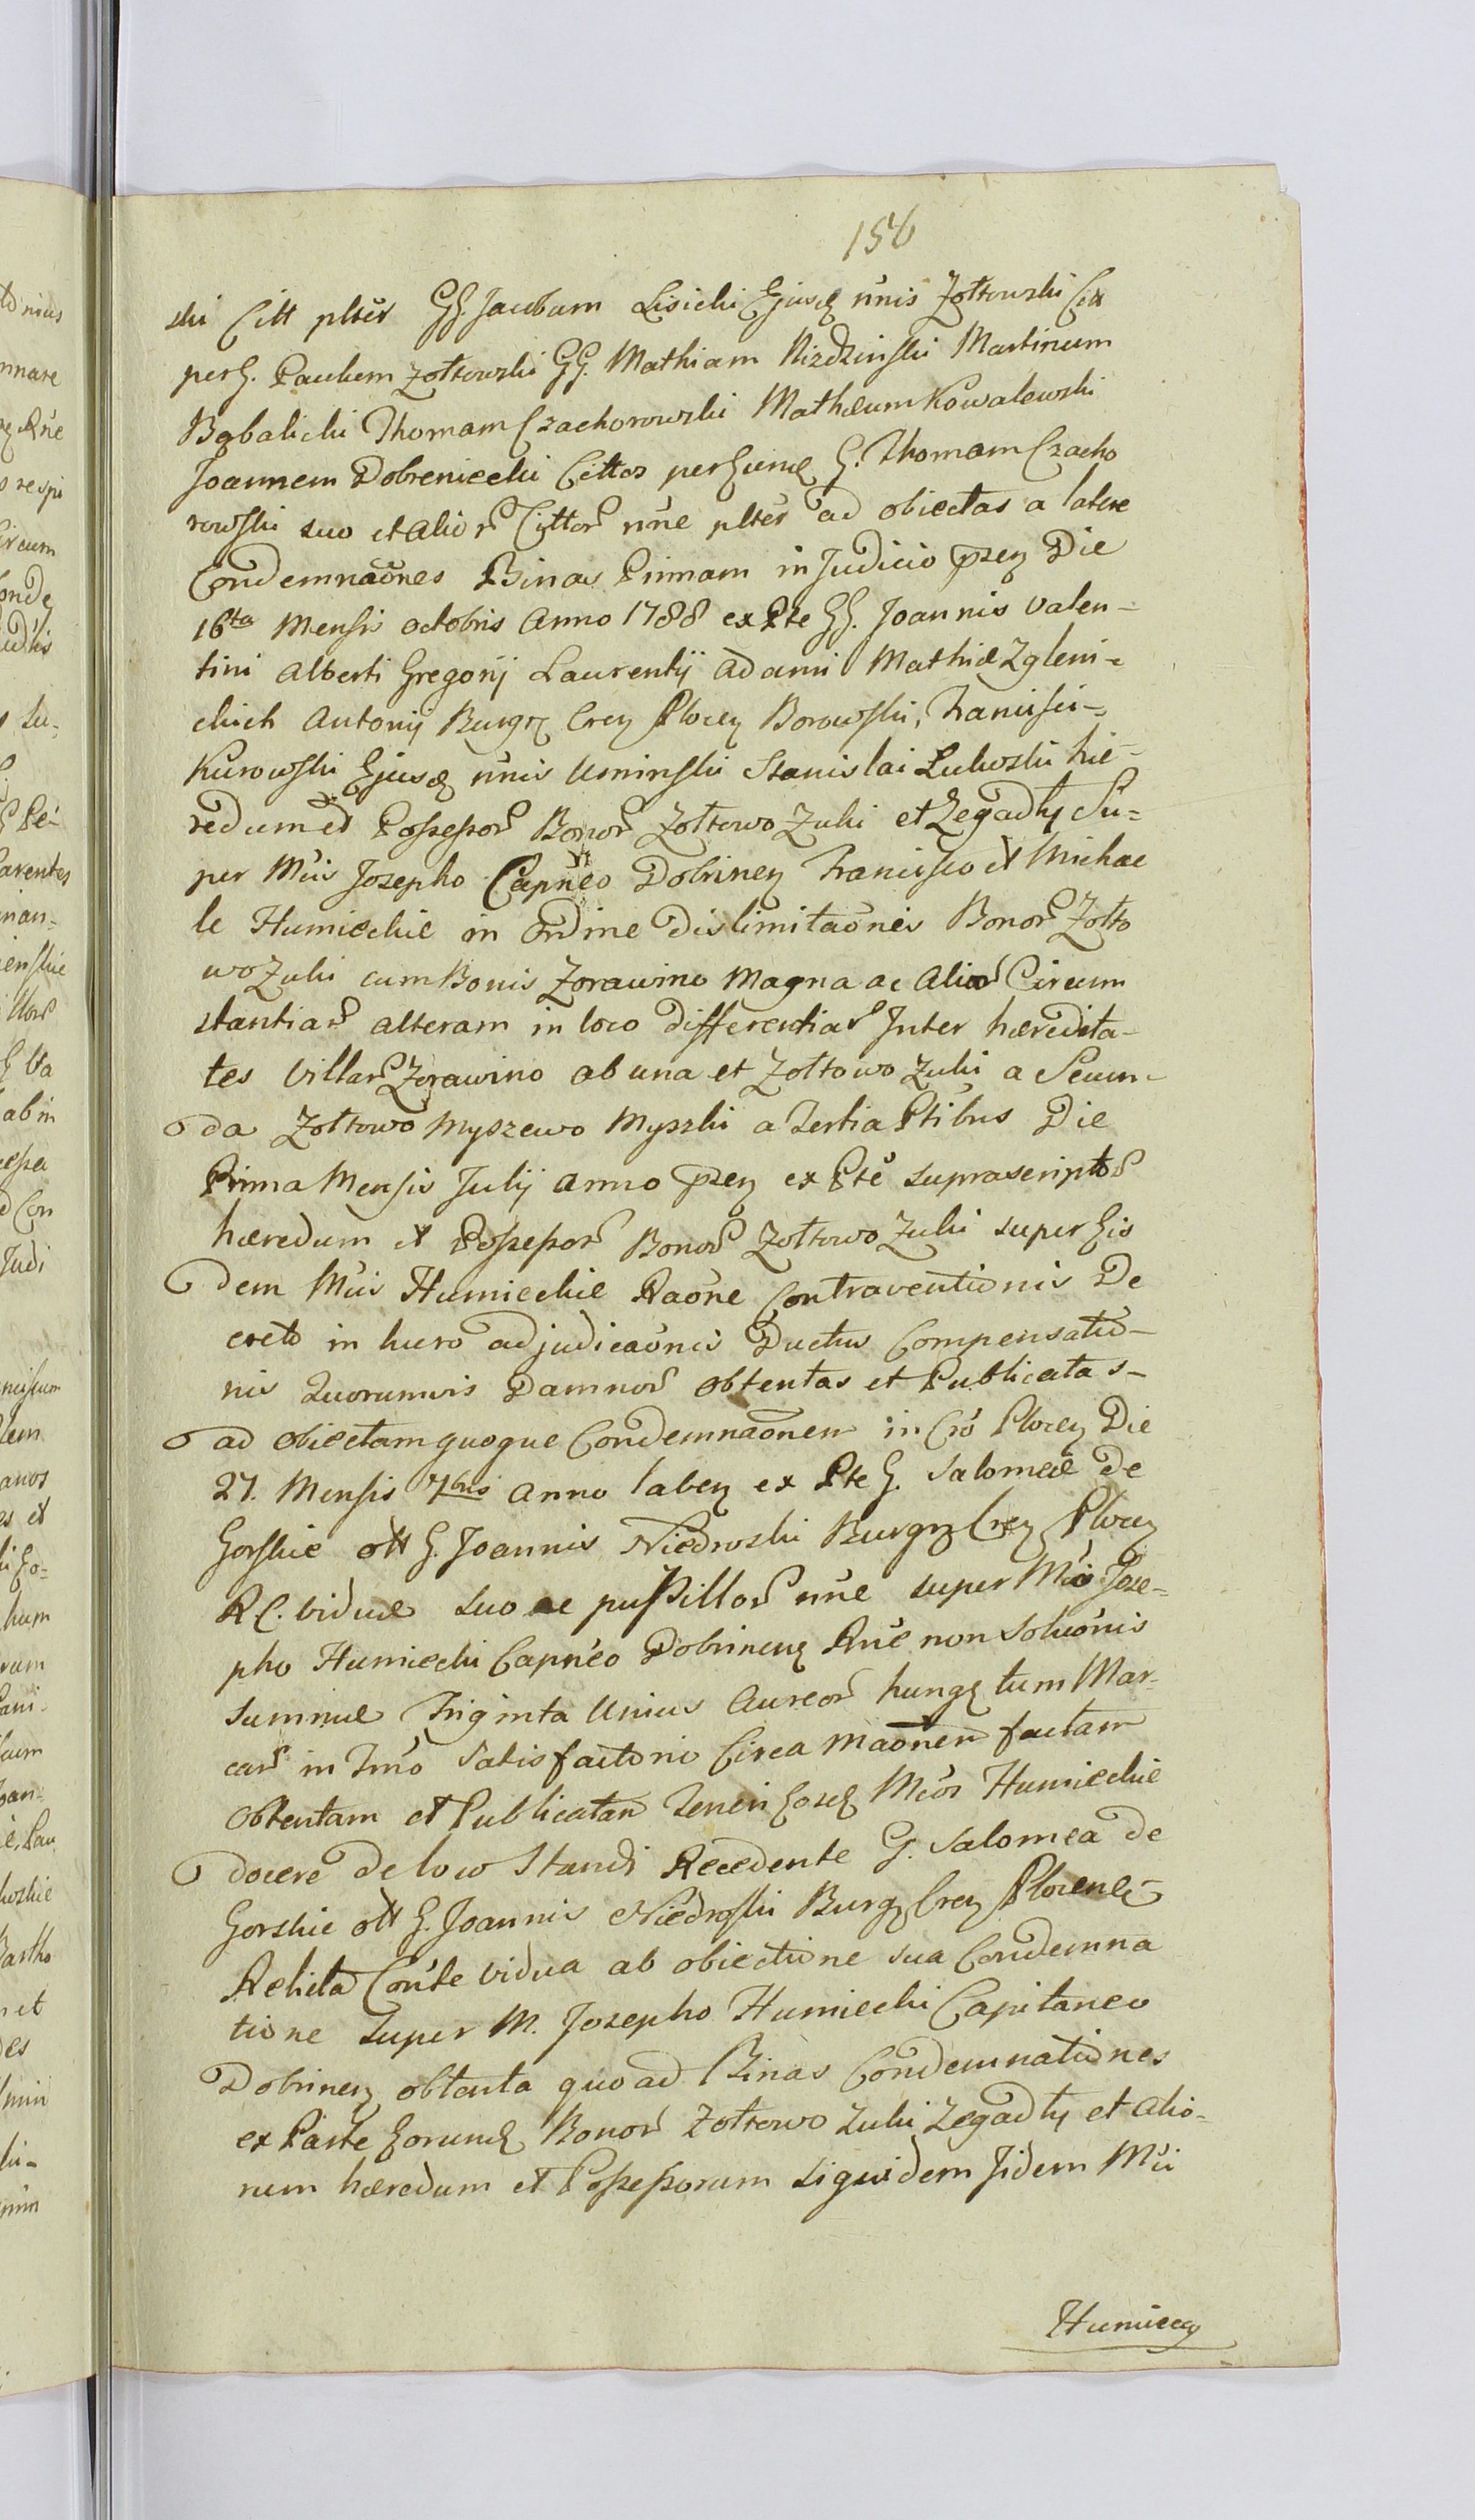 156
ski Citt plter GG. Jacobum Lisicki Ejusđ nnis Zołtowski Citt
per G. Paulum Zołtowski GG. Mathiam Nizdzinski Martinum
Bąbalicki Thomam Czachorowski Mathæum Kowalewski
Joannem Dobreniecki Cittos per Eund G. Thomam Czacho
rowski suo et alior Cittor nne plter ad obiectas a latere
Condemnaones Binas Primam in Judicio przn Die
16ta Mensis octobris Anno 1788 ex Pte GG. Joannis Valen-
tini Alberti Gregorij Laurentij Adami Mathiæ Zgleni-
ckich Antonij Burgr Cren Plocen Borowski, Francisci-
Kurowski Ejusđ nnis Uminski Stanislai Lukoski hæ-
redum et Possessor Bonor Zołtowo Zuki et Zegadły Su=
per Mcis Josepho Capneo Dobrinen Francisco et Michae
le Humieckie in Ordine Dislimitaonis Bonor Zołto
wo Zuki cum Bonis Zorawino Magna ac Alior Circum
stantiar alteram in loco differentiar Inter hæredita-
tes Villar Zorawino ab una et Zołtowo Zuki a Secun-
da Zołtowo Myszewo Myszki a Tertia Ptibus Die
Prima Mensis Julij Anno przn ex Pte suprascriptor
hæredum et Possessor Bonor Zołtowo Zuki super Eis
dem Mcis Humieckie Raone Contraventionis De
creto in huro adjudicaonis Ductus Compensatio-
nis Quorumvis Damnor obtentas et Publicatas-
ad obiectam quoque Condemnaonem in Cro Plocen Die
27. Mensis 7bris Anno laben ex Pte G. Salomeæ De
Gorskie ott G. Joannis Niedroski Burgr Cren Plocen
R C. viduæ suo ac pupillor nne super Mco Jose-
pho Humiecki Capneo Dobrinen Rne non Soluonis
Summæ Triginta Unius Aureor hung tum Mar-
car in Tmo Satisfactorio Circa Maonem factam
obtentam et Publicatam Teneri Eosđ Mcos Humieckie
docere de loco Standi Recedente G. Salomea de
Gorskie ott G. Joannis Niedroski Burgr Cren Plocen-
Relicta Conte vidua ab obiectione sua Condemna
tione super M. Josepho Humiecki Capitaneo
Dobrinen obtenta quoad Binas Condemnationes
ex Parte Eorund Bonor Zołtowo Zuki Zegadły et Alio-
rum hæredum et Possessorum siquidem Iidem Mci
Humiecc